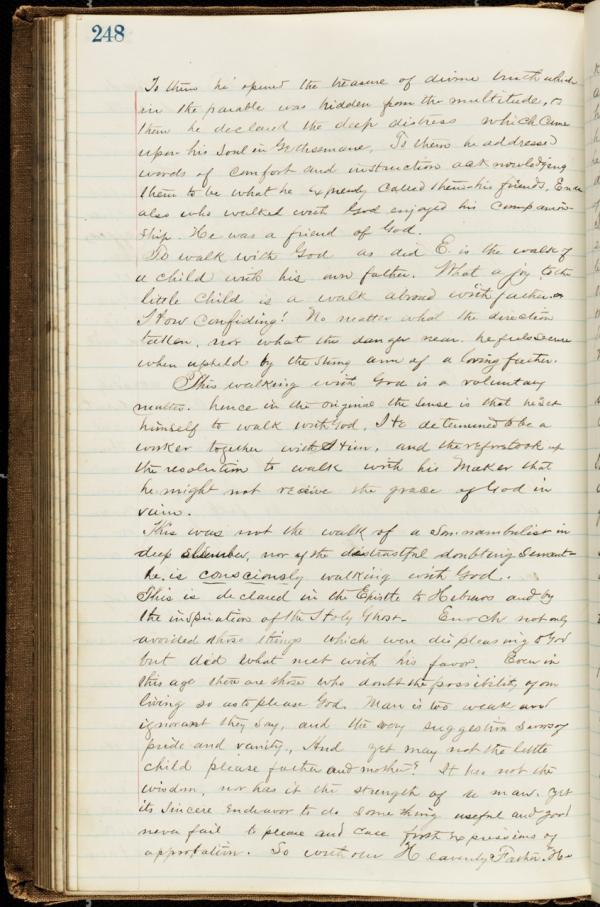 248
To them he opened the treasure of divine truth which
in the parable was hidden from the multitude, to
them he declared the deep distress which came
upon his Soul in Gethsemane, To them he addressed
words of comfort and instruction acknowledging
them to be what he expressly called them his friends. Enoch
also who walked with God enjoyed his companion-
ship. He was a friend of God.
To walk with God as did E. is the walk of
a child with his own father. What a joy to the
little child is a walk abroad with father.
How confiding! No matter what the direction
taken, nor what the danger near. he feels secure
when upheld by the strong arm of a loving father.
This walking with God is a voluntary
matter. hence in the original the sense is that he set
himself to walk with God, He determined to be a
worker together with Him, and therefore took up
the resolution to walk with his Maker that
he might not receive the grace of God in
vain.
This was not the walk of a Somnambulist in
deep slumber, nor of the distrustful doubting servant-
he is consciously walking with God.
This is declared in the Epistle to Hebrews and by
the inspiration of the Holy Ghost. Enoch not only
avoided those things which were displeasing to God
but did what met with his favor. Even in
this age there are those who doubt the possibility of our
living so as to please God. Man is too weak and
ignorant they say, and the very suggestion savors of
pride and vanity., And yet may not the little
child please father and mother? It has not the
wisdom, nor has it the strength of a man. yet
its sincere endeavor to do something useful and good
never fail to please and call forth expressions of
approbation. So with our Heavenly Father. He